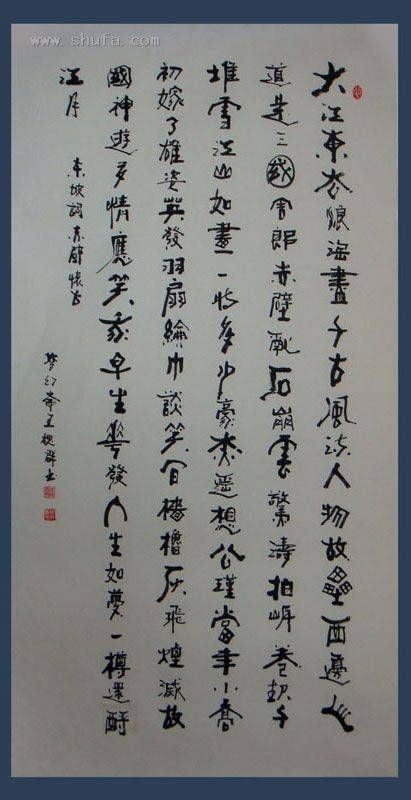 www.shufa.com
大江東去浪淘盡千古風流人物故壘西邊人
道是三國周郎赤壁亂石崩雲驚濤拍岸卷起千
堆雪江山如畫一時多少豪杰遥想公瑾當年小喬
初嫁了雄姿英發羽扇綸巾談笑間檣櫓灰飛煙滅故
國神遊多情應笑我早生華發人生如夢一樽還酹
江月
東坡詞赤壁懷古